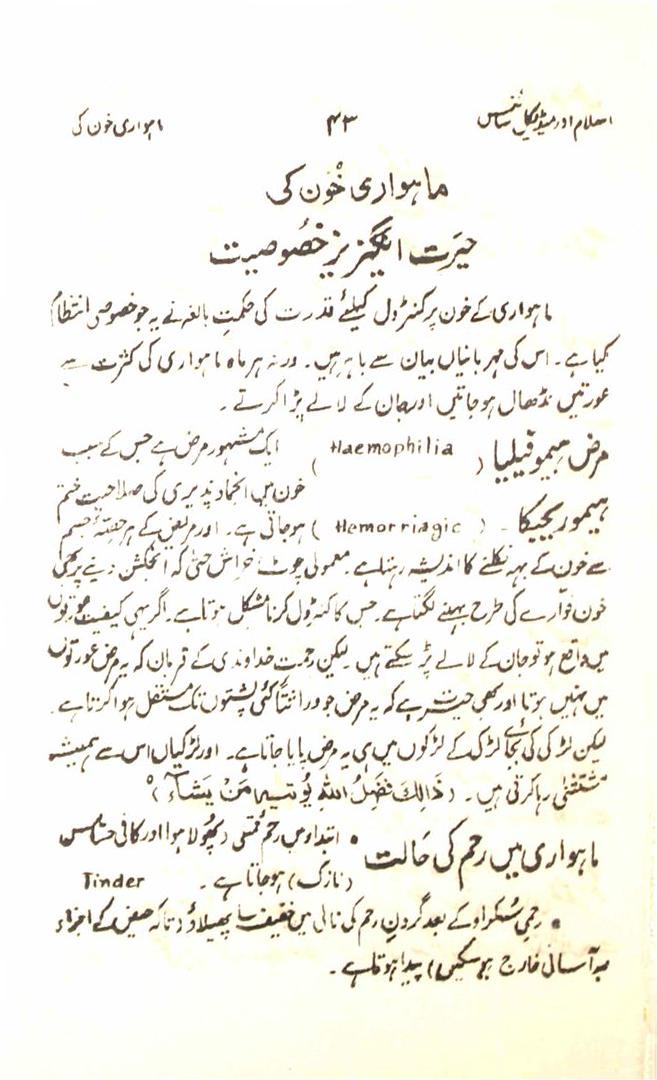 اسلام اور میڈیکل سائنس ۴۳ ماہواری خون کی
ماہواری خون کی
حیرت انگیز خصوصیت
ماہواری کے خون پر کنٹرول کیلئے قدرت کی حکمتِ بالغہ نے یہ جو خصوصی انتظام
کیا ہے۔ اس کی مہربانیاں بیان سے باہر ہیں۔ ورنہ ہر ماہ ماہواری کی کثرت سے
عورتیں نڈھال ہو جاتیں اور جان کے لالے پڑا کرتے۔
مرض ہیموفیلیا (Haemophilia) ایک مشہور مرض ہے جس کے سبب
خون میں انجماد پذیری کی صلاحیت ختم
ہیموریجیکا۔ (Hemorriagic) ہو جاتی ہے۔ اور مریض کے ہر حصۂ جسم
سے خون کے بہہ نکلنے کا اندیشہ رہتا ہے۔ معمولی چوٹ خراش حتیٰ کہ انجکشن دینے پر بھی
خون فوّارے کی طرح بہنے لگتا ہے۔ جس کا کنٹرول کرنا مشکل ہوتا ہے۔ اگر یہی کیفیت عورتوں
میں واقع ہو تو جان کے لالے پڑ سکتے ہیں۔ لیکن رحمت خداوندی کے قربان کہ یہ مرض عورتوں
میں نہیں ہوتا اور بھی حیرت ہے کہ یہ مرض جو وراثتاً کئی پشتوں تک منتقل ہوا کرتا ہے۔
لیکن لڑکی کی بجائے لڑکی کے لڑکوں میں ہی یہ مرض پایا جاتا ہے۔ اور لڑکیاں اس سے ہمیشہ
مستثنیٰ رہا کرتی ہیں۔ (ذَالِكَ فَضْلُ اللّٰهِ يُوتِيهِ مَنْ يَشَآءُ)
ماہواری میں رحم کی حالت • ابتداء میں رحم متمی (پھولا ہوا اور کافی حساس
(نازک) ہو جاتا ہے۔ Tinder
• رحمی سکڑاو کے بعد گردنِ رحم کی نالی میں خفیف سا پھیلاؤ (تاکہ حیض کے اجزاء
بہ آسانی خارج ہو سکیں) پیدا ہوتا ہے۔